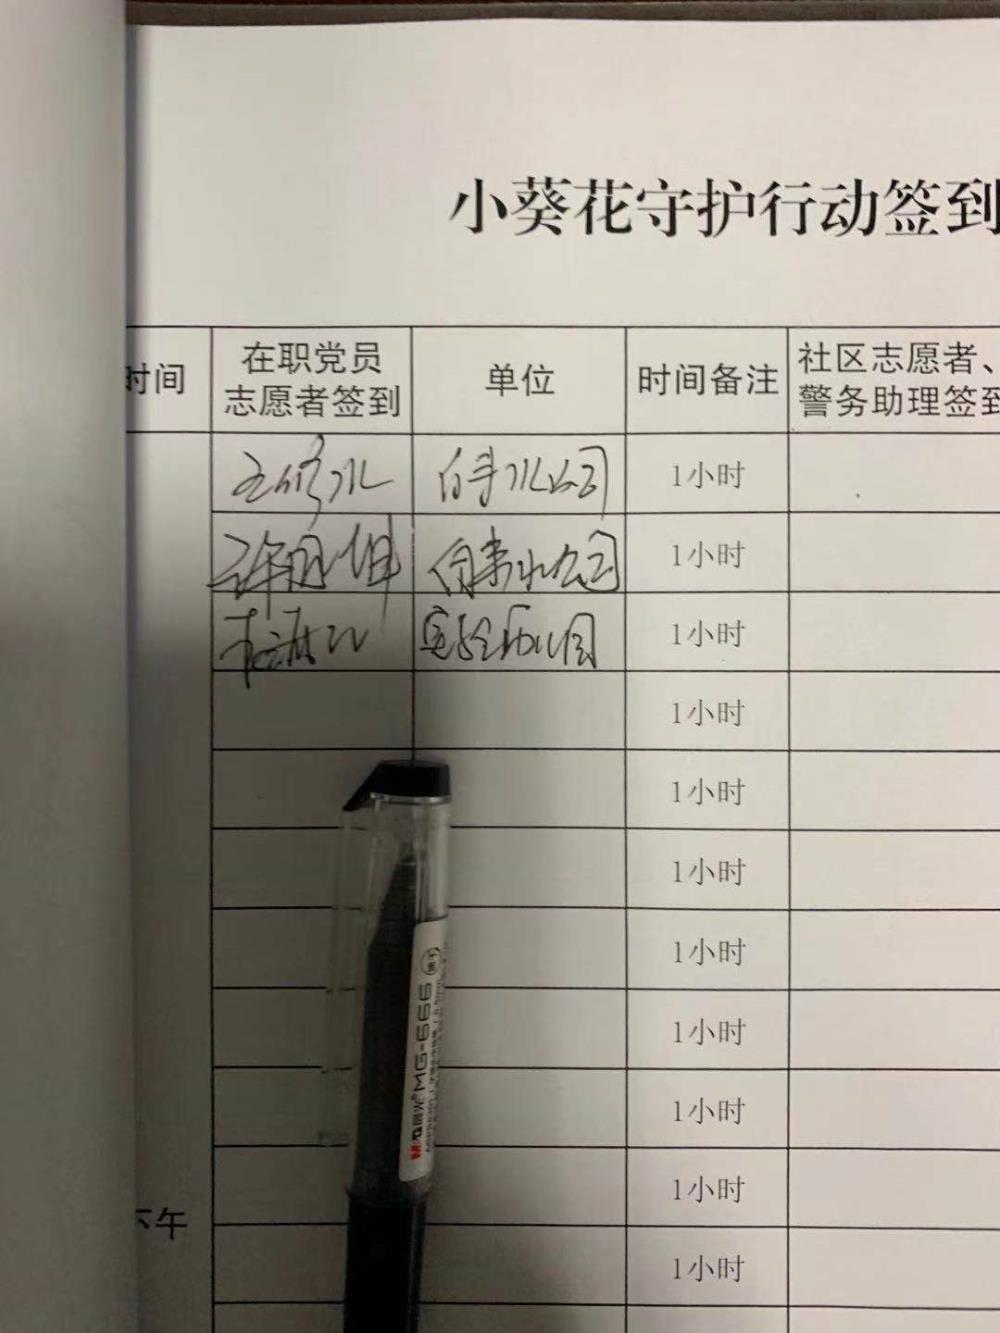 小葵花守护行动签到
时间
在职党员
志愿者签到
单位
时间备注
社区志愿者、
警务助理签到
王修水
自来水公司
1小时
自来水公司
1小时
实验幼儿园
1小时
1小时
1小时
1小时
1小时
1小时
1小时
1小时
下午
1小时
M&G晨光®MG-666